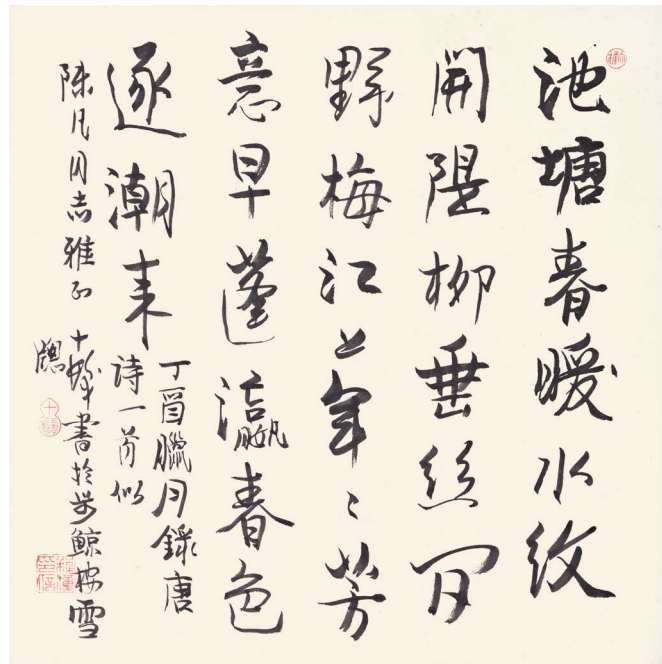 池塘春暖水纹
開隄柳垂丝间
野梅江上年〻芳
意早蓬瀛春色
逐潮来
丁酉臘月錄唐
诗一首似
陈凡同志雅正
書於步鲸楼雪
牕